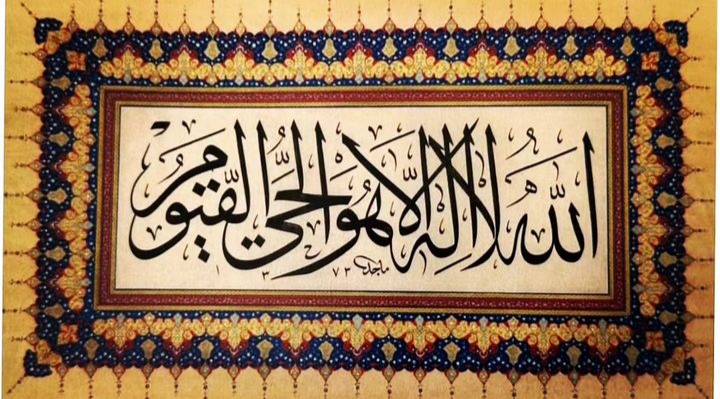 اَللّٰهُ لَا اِلٰهَ اِلَّا هُوَ الْحَيُّ الْقَيُّومُ
ماجد ١٣٧٣